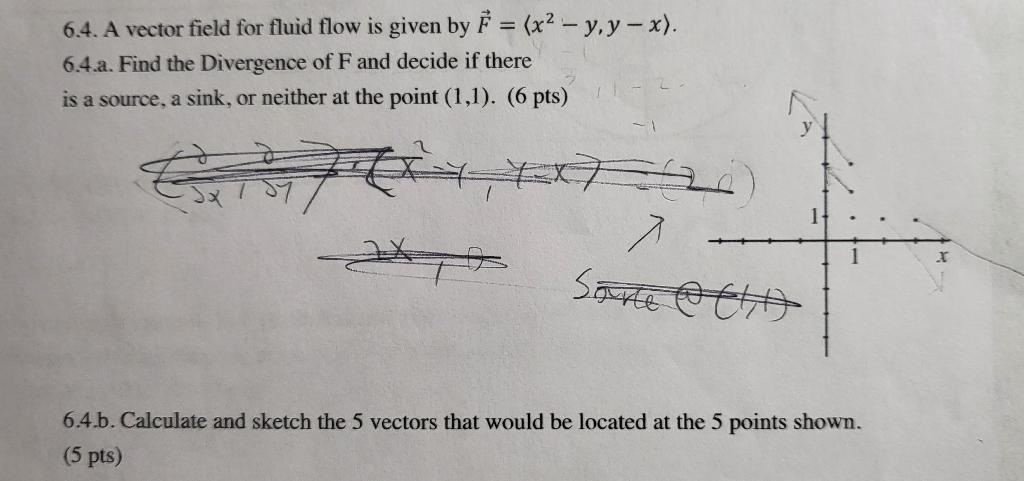 6.4. A vector field for fluid flow is given by F⃗ = ⟨x² − y, y − x⟩.
6.4.a. Find the Divergence of F and decide if there
is a source, a sink, or neither at the point (1,1). (6 pts)
-1
y
⟨∂/∂x, ∂/∂y⟩ · ⟨x² - y, y - x⟩ = (2, 0)
1
2x, 0
1 x
Source @ (1,1)
6.4.b. Calculate and sketch the 5 vectors that would be located at the 5 points shown.
(5 pts)